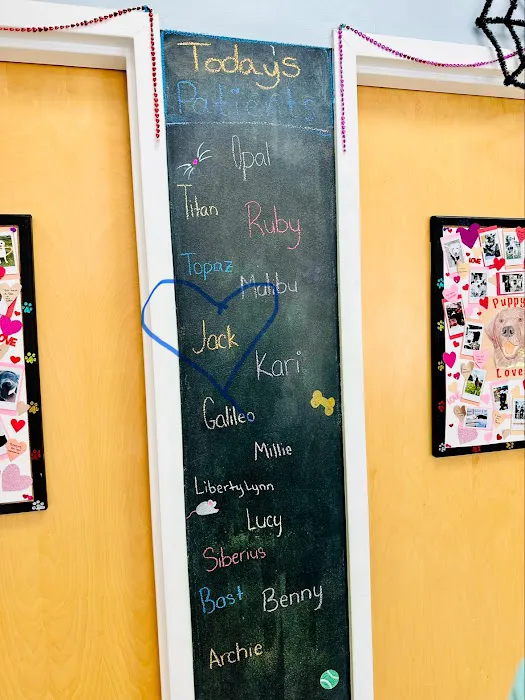 Today's
Patients
Opal
Titan
Ruby
Topaz
Malibu
Jack
Kari
Galileo
Millie
LibertyLynn
Lucy
Siberius
Bast
Benny
Archie
LOVE
LOVE
Puppy
Love